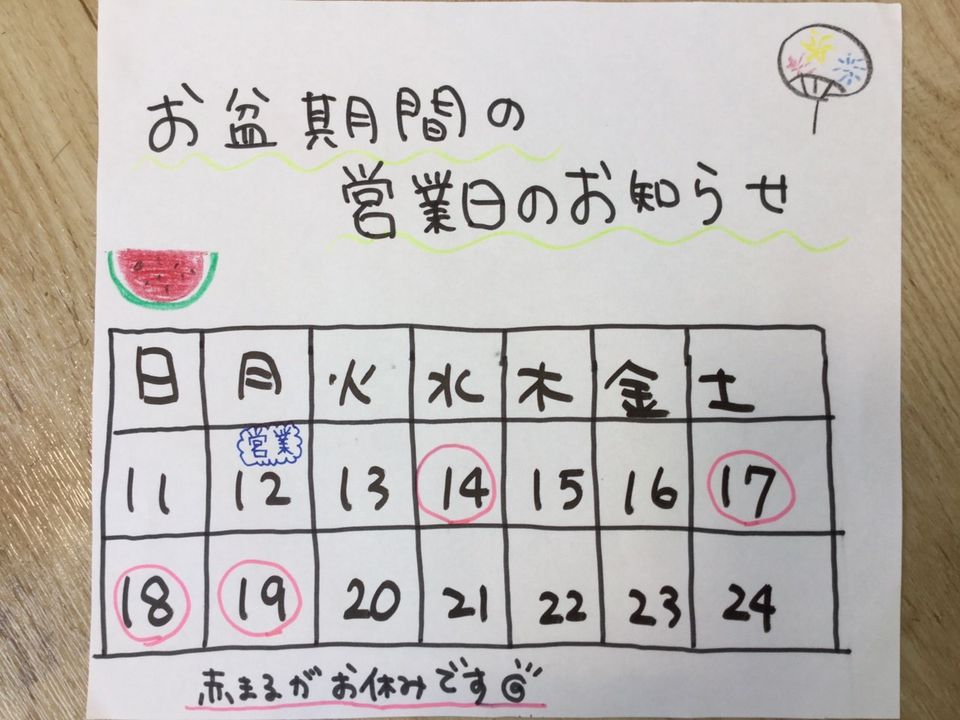 お盆期間の
営業日のお知らせ
日 月 火 水 木 金 土
営業
11 12 13 14 15 16 17
18 19 20 21 22 23 24
赤まるがお休みです